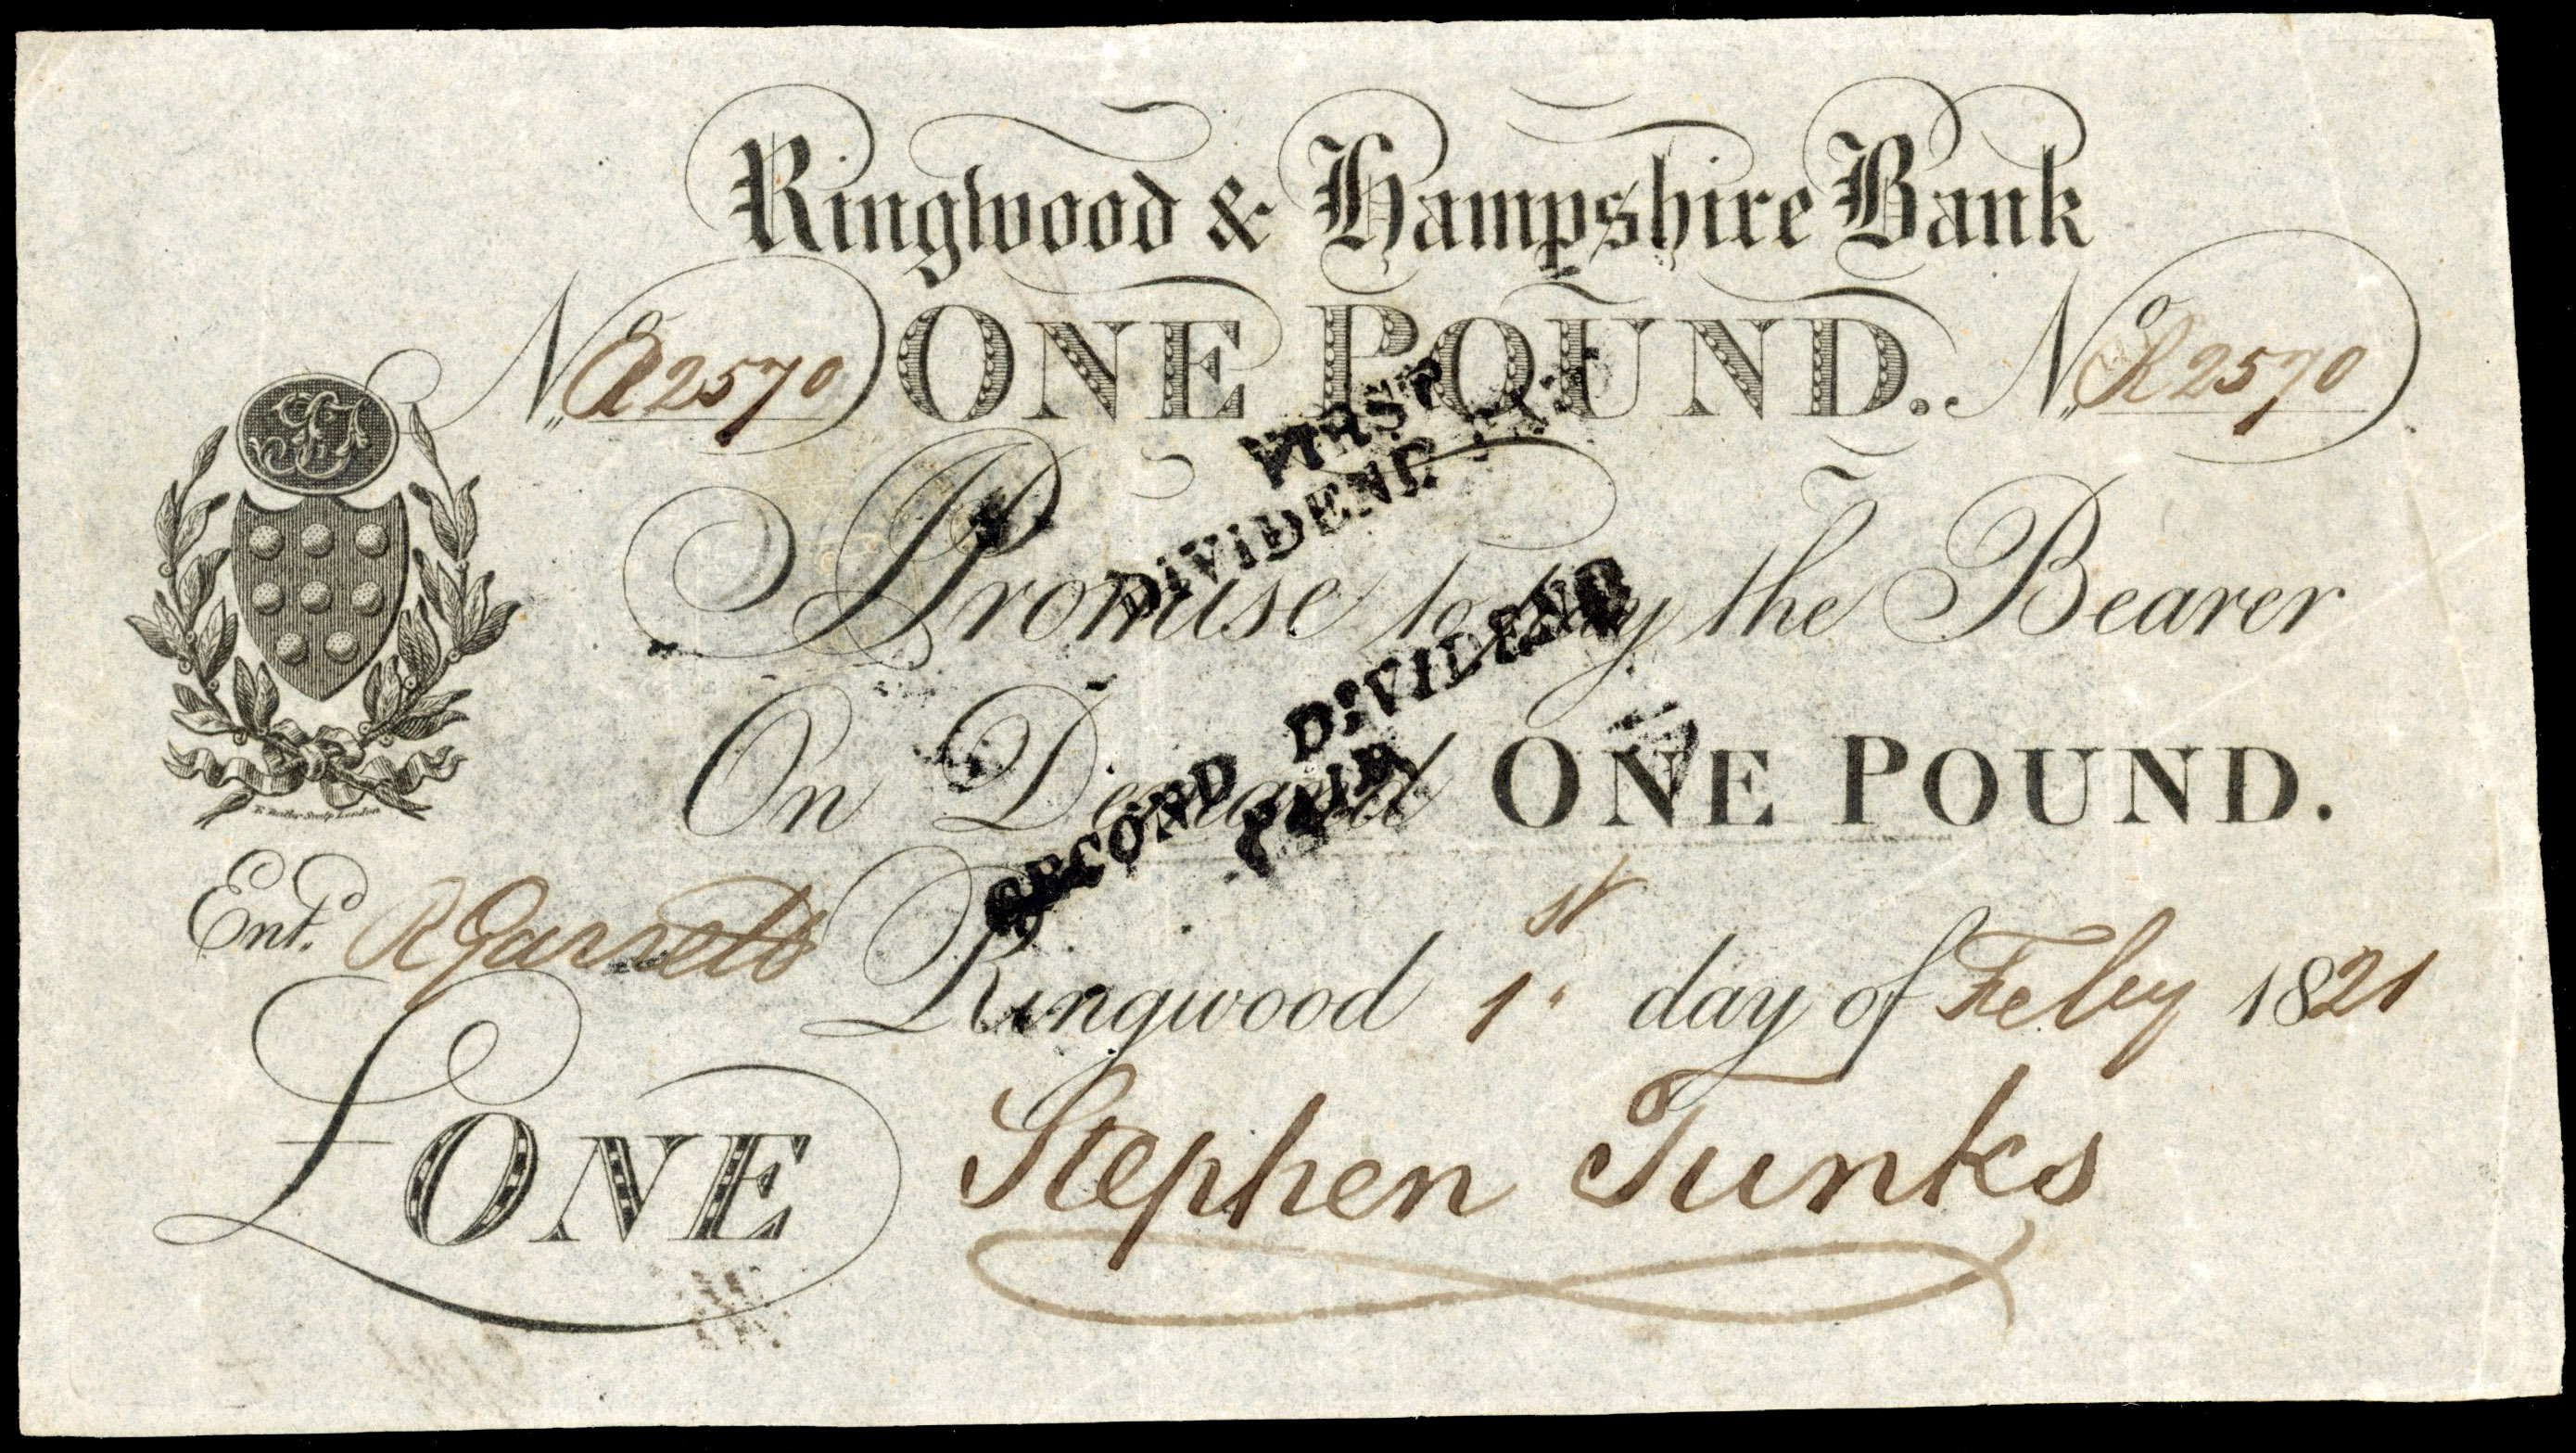 Ringwood & Hampshire Bank
No R2570 ONE POUND. No R2570
I Promise to pay the Bearer
On Demand ONE POUND.
FIRST
DIVIDEND
SECOND DIVIDEND
PAID
Entd. R Garrett
Ringwood 1st day of Feby 1821
£ONE
Stephen Tunks